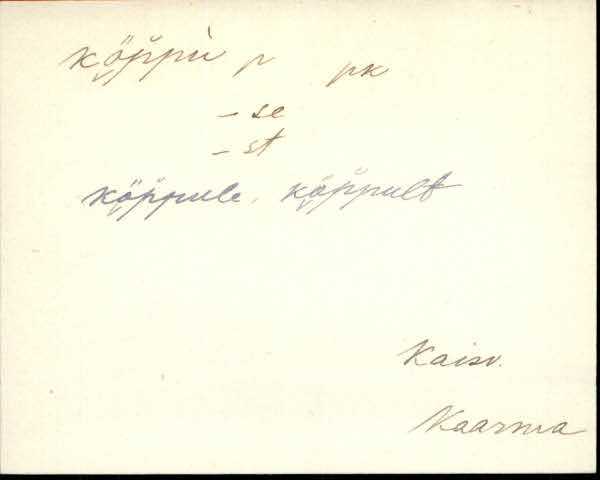 köppù p pk
- se
- st
köppule, köppult
Kaisv.
Kaarma